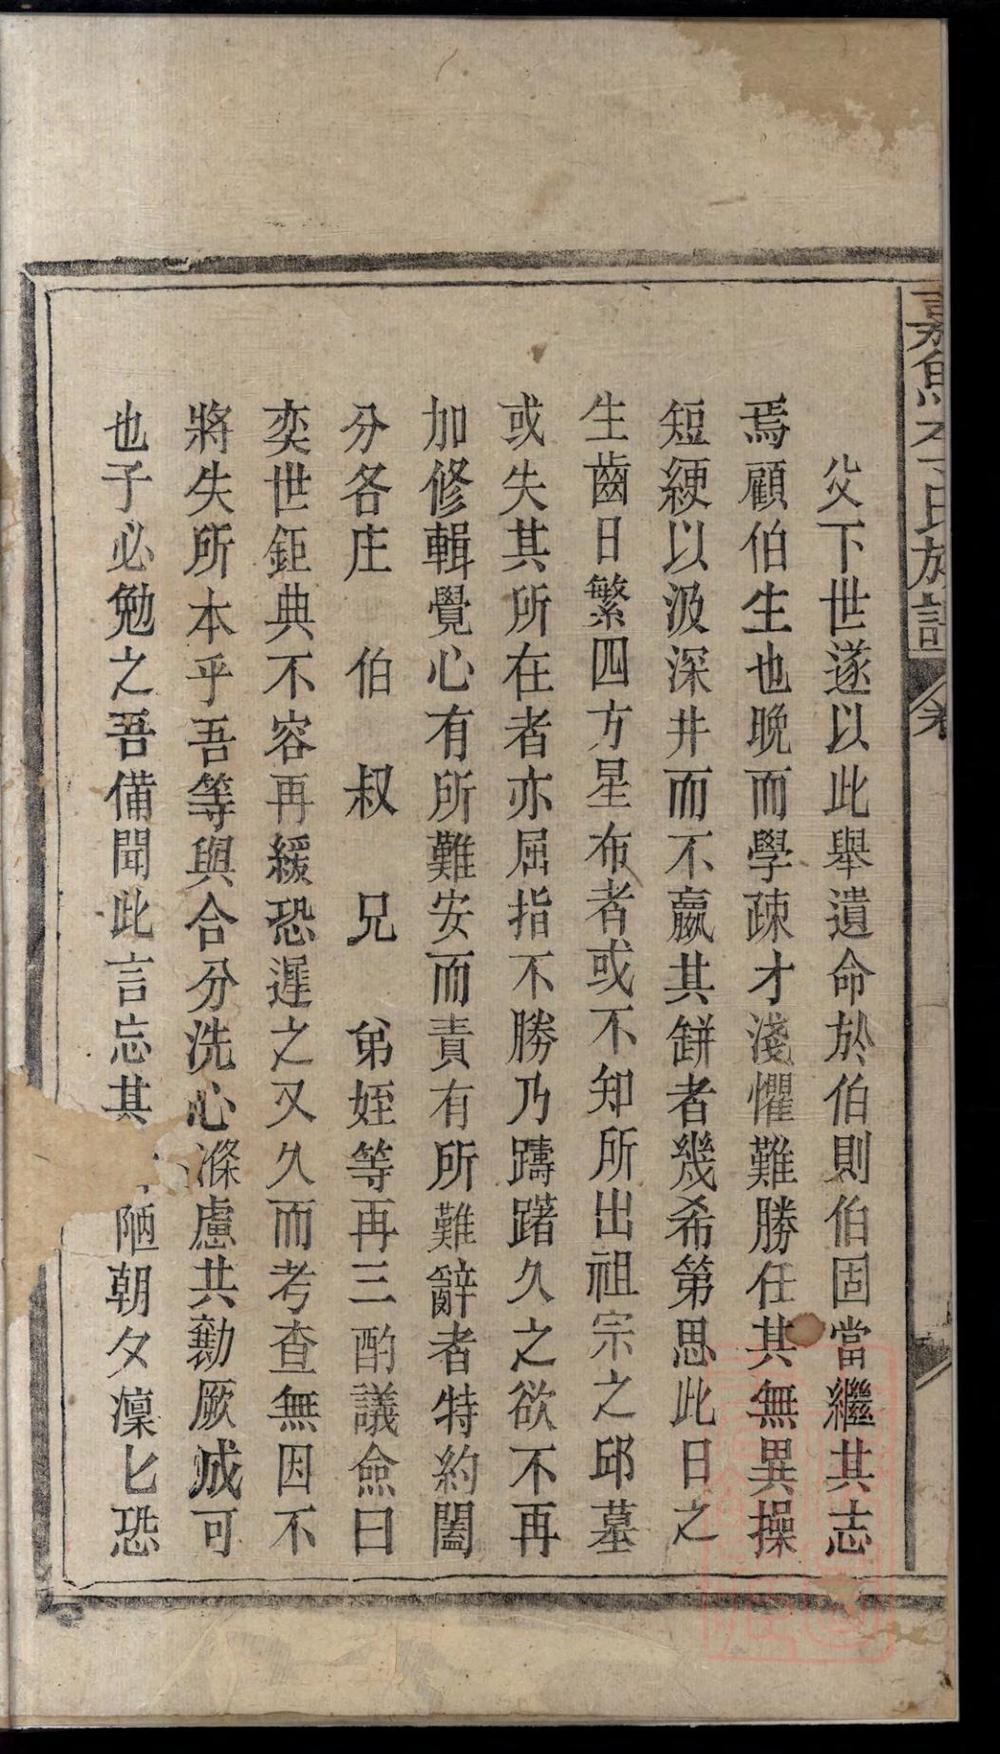 父下世遂以此舉遺命於伯則伯固當繼其志
焉顧伯生也晚而學疎才淺懼難勝任其無異操
短綆以汲深井而不羸其缾者幾希第思此日之
生齒日繁四方星布者或不知所出祖宗之邱墓
或失其所在者亦屈指不勝乃躊躇久之欲不再
加修輯覺心有所難安而責有所難辭者特約闔
分各庄 伯 叔 兄 弟姪等再三酌議僉曰
奕世鉅典不容再緩恐遲之又久而考查無因不
將失所本乎吾等與合分洗心滌慮共勷厥成可
也子必勉之吾備聞此言忘其 陋朝夕凜匕恐